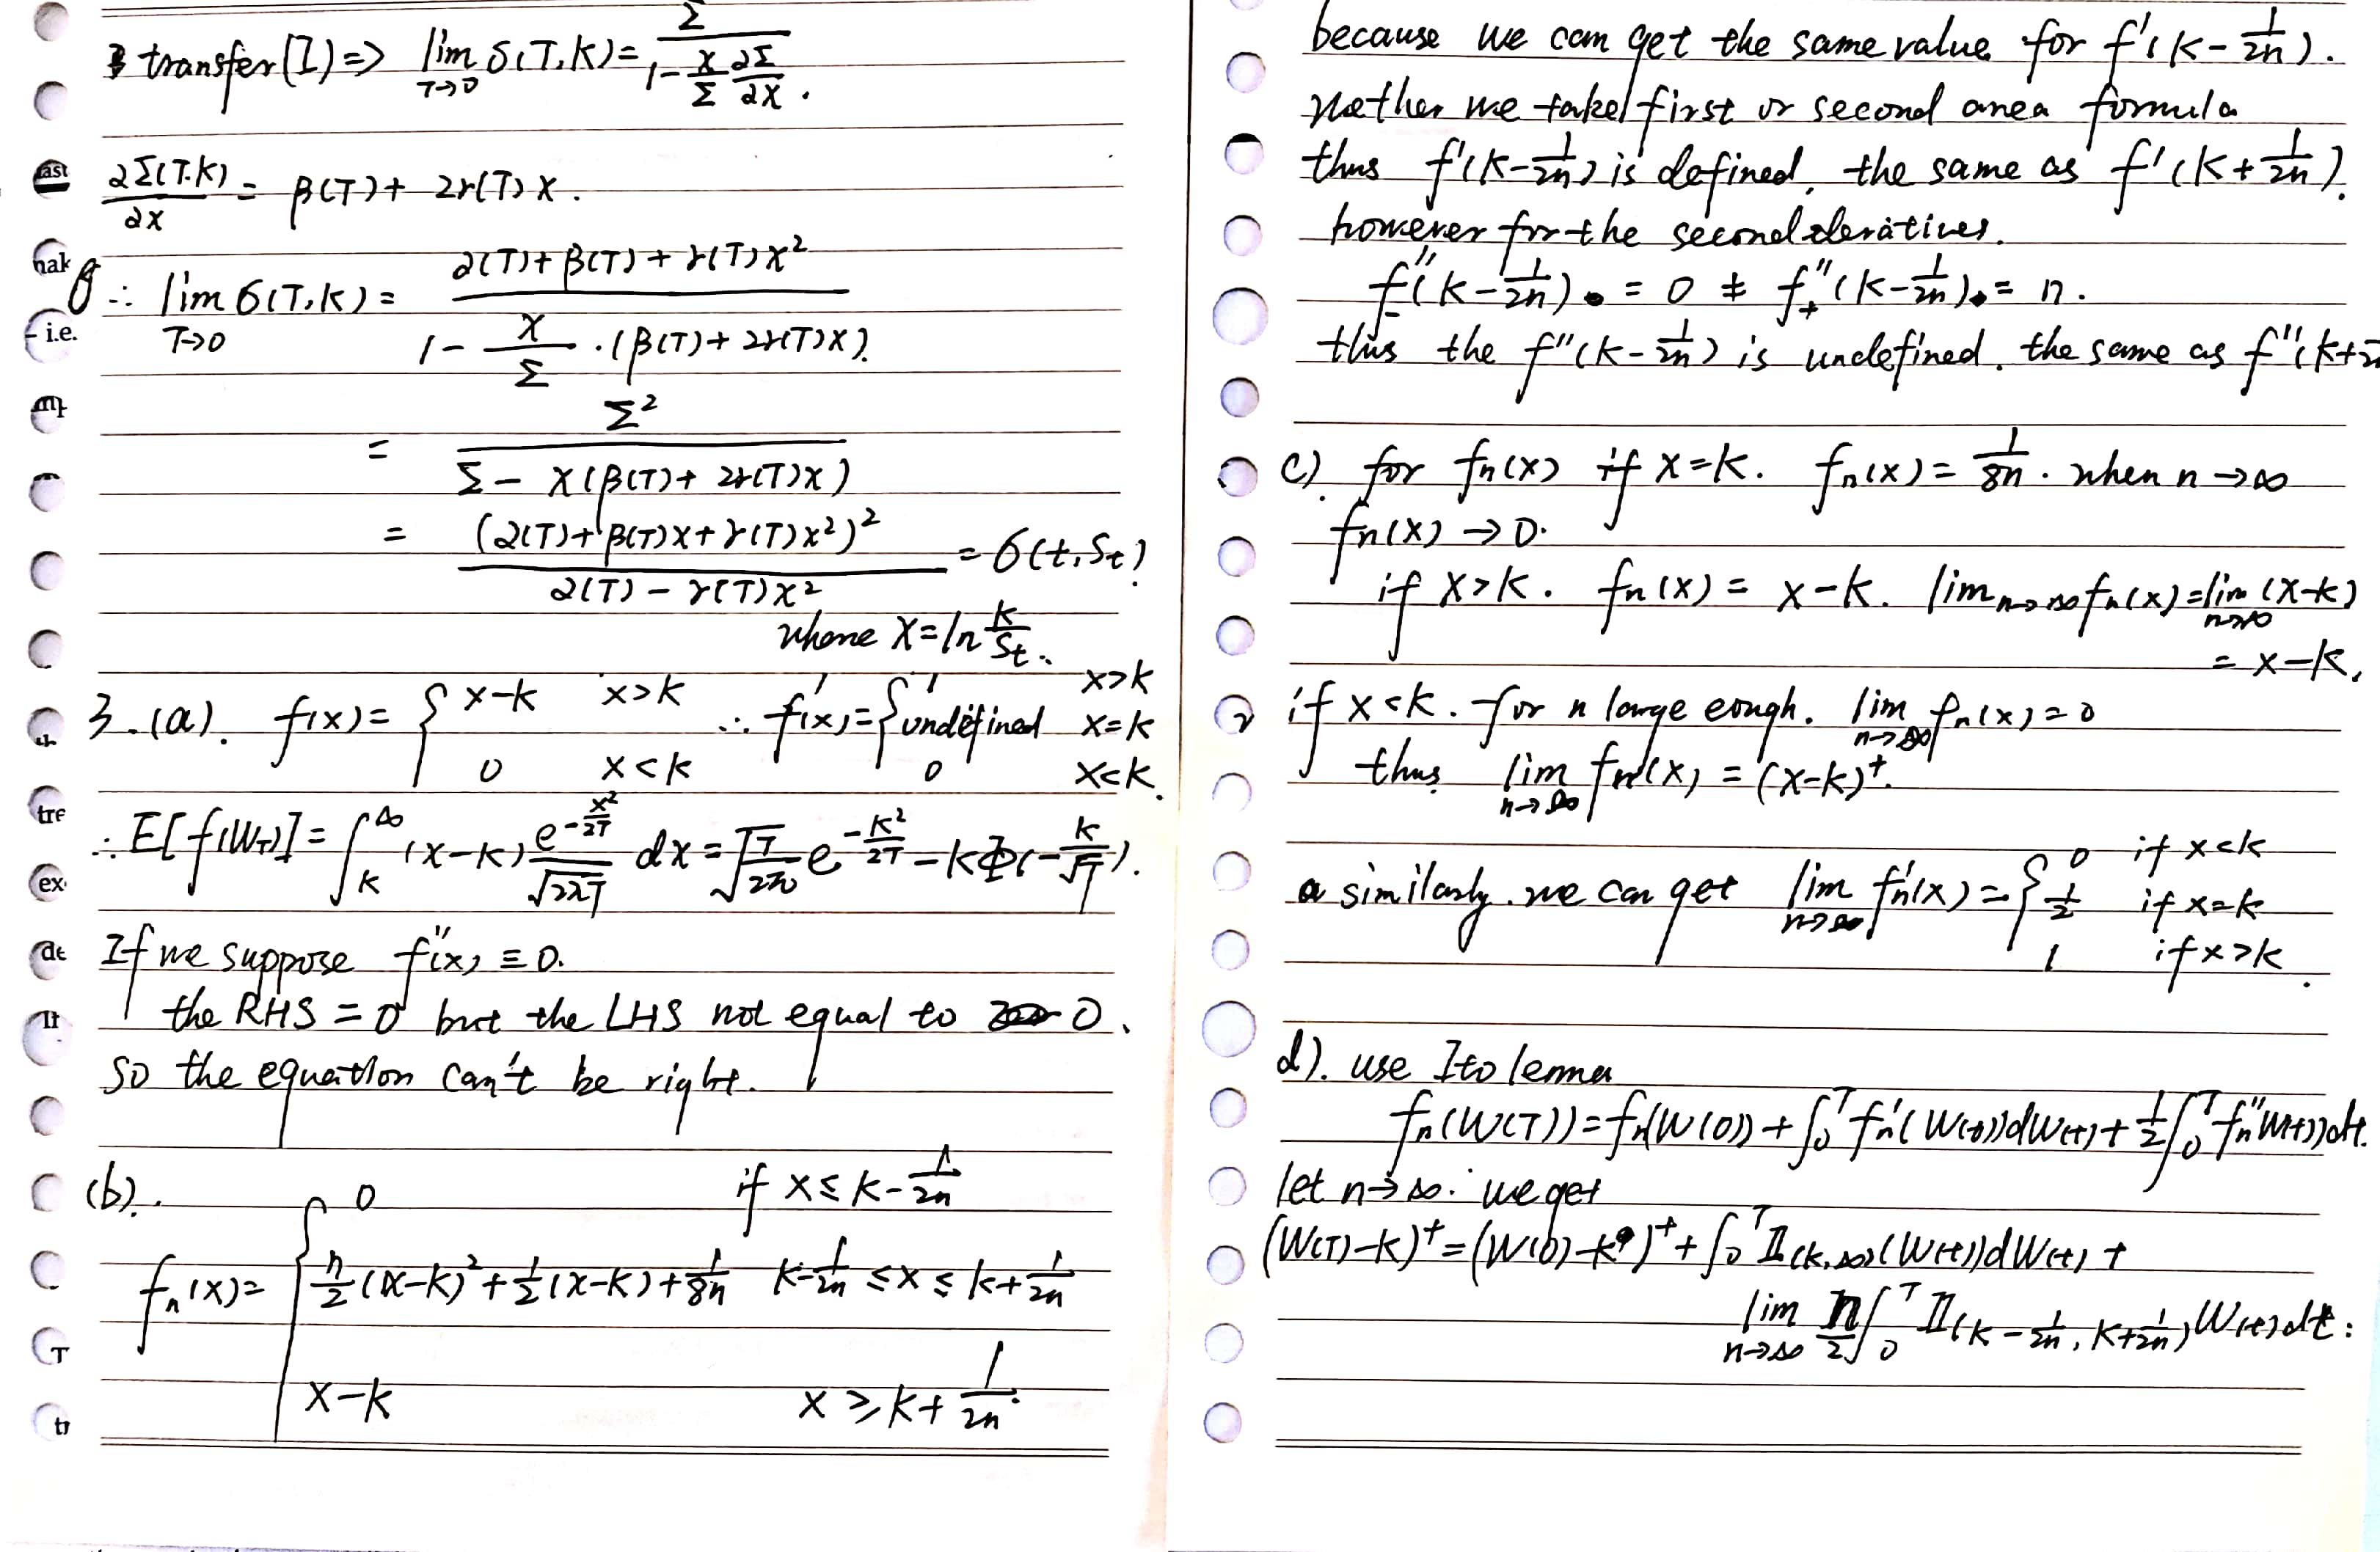 transfer (I) => lim_{T→0} σ(T,K) = Σ / (1 - x/Σ ∂Σ/∂x).
∂Σ(T.K)/∂x = β(T) + 2γ(T)x.
∴ lim_{T→0} σ(T,K) = (α(T) + β(T) + γ(T)x²) / (1 - x/Σ · (β(T) + 2γ(T)x))
= Σ² / (Σ - x(β(T) + 2γ(T)x))
= (α(T) + β(T)x + γ(T)x²)² / (α(T) - γ(T)x²) = σ(t,S_t)
where x = ln K/S_t.
3.(a). f(x) = { x-k x>k; 0 x<k ∴ f'(x) = { 1 x>k; undefined x=k; 0 x<k.
∴ E[f(W_T)] = ∫_k^∞ (x-k) e^{-x²/2T}/√(2πT) dx = √(T/2π) e^{-k²/2T} - kΦ(-k/√T).
If we suppose f''(x) ≡ 0.
the RHS = 0 but the LHS not equal to 0.
so the equation can't be right.
(b).
f_n(x) = { 0 if x ≤ k - 1/2n
n/2 (x-k)² + 1/2 (x-k) + 1/8n k - 1/2n ≤ x ≤ k + 1/2n
x-k x ≥ k + 1/2n.
because we can get the same value for f'(k - 1/2n).
whether we take first or second area formula
thus f'(k - 1/2n) is defined, the same as f'(k + 1/2n).
however for the second deratives.
f''_-(k - 1/2n) = 0 ≠ f''_+(k - 1/2n) = n.
thus the f''(k - 1/2n) is undefined. the same as f''(k+
c). for f_n(x) if x=k. f_n(x) = 1/8n. when n→∞
f_n(x) → 0.
if x>k. f_n(x) = x-k. lim_{n→∞} f_n(x) = lim_{n→∞} (x-k)
= x-k.
if x<k. for n large eough. lim_{n→∞} f_n(x) = 0
thus lim_{n→∞} f_n(x) = (x-k)⁺.
similarly. we can get lim_{n→∞} f'_n(x) = { 0 if x<k
1/2 if x=k
1 if x>k.
d). use Ito lemma
f_n(W(T)) = f_n(W(0)) + ∫_0^T f'_n(W(t))dW(t) + 1/2 ∫_0^T f''_n W(t))dt.
let n→∞. we get
(W(T)-k)⁺ = (W(0)-k)⁺ + ∫_0^T 𝕀_{(k,∞)}(W(t))dW(t) +
lim_{n→∞} n/2 ∫_0^T 𝕀_{(k - 1/2n, k + 1/2n)} W(t)dt.
ast
hak
- i.e.
tre
ex
de
It
T